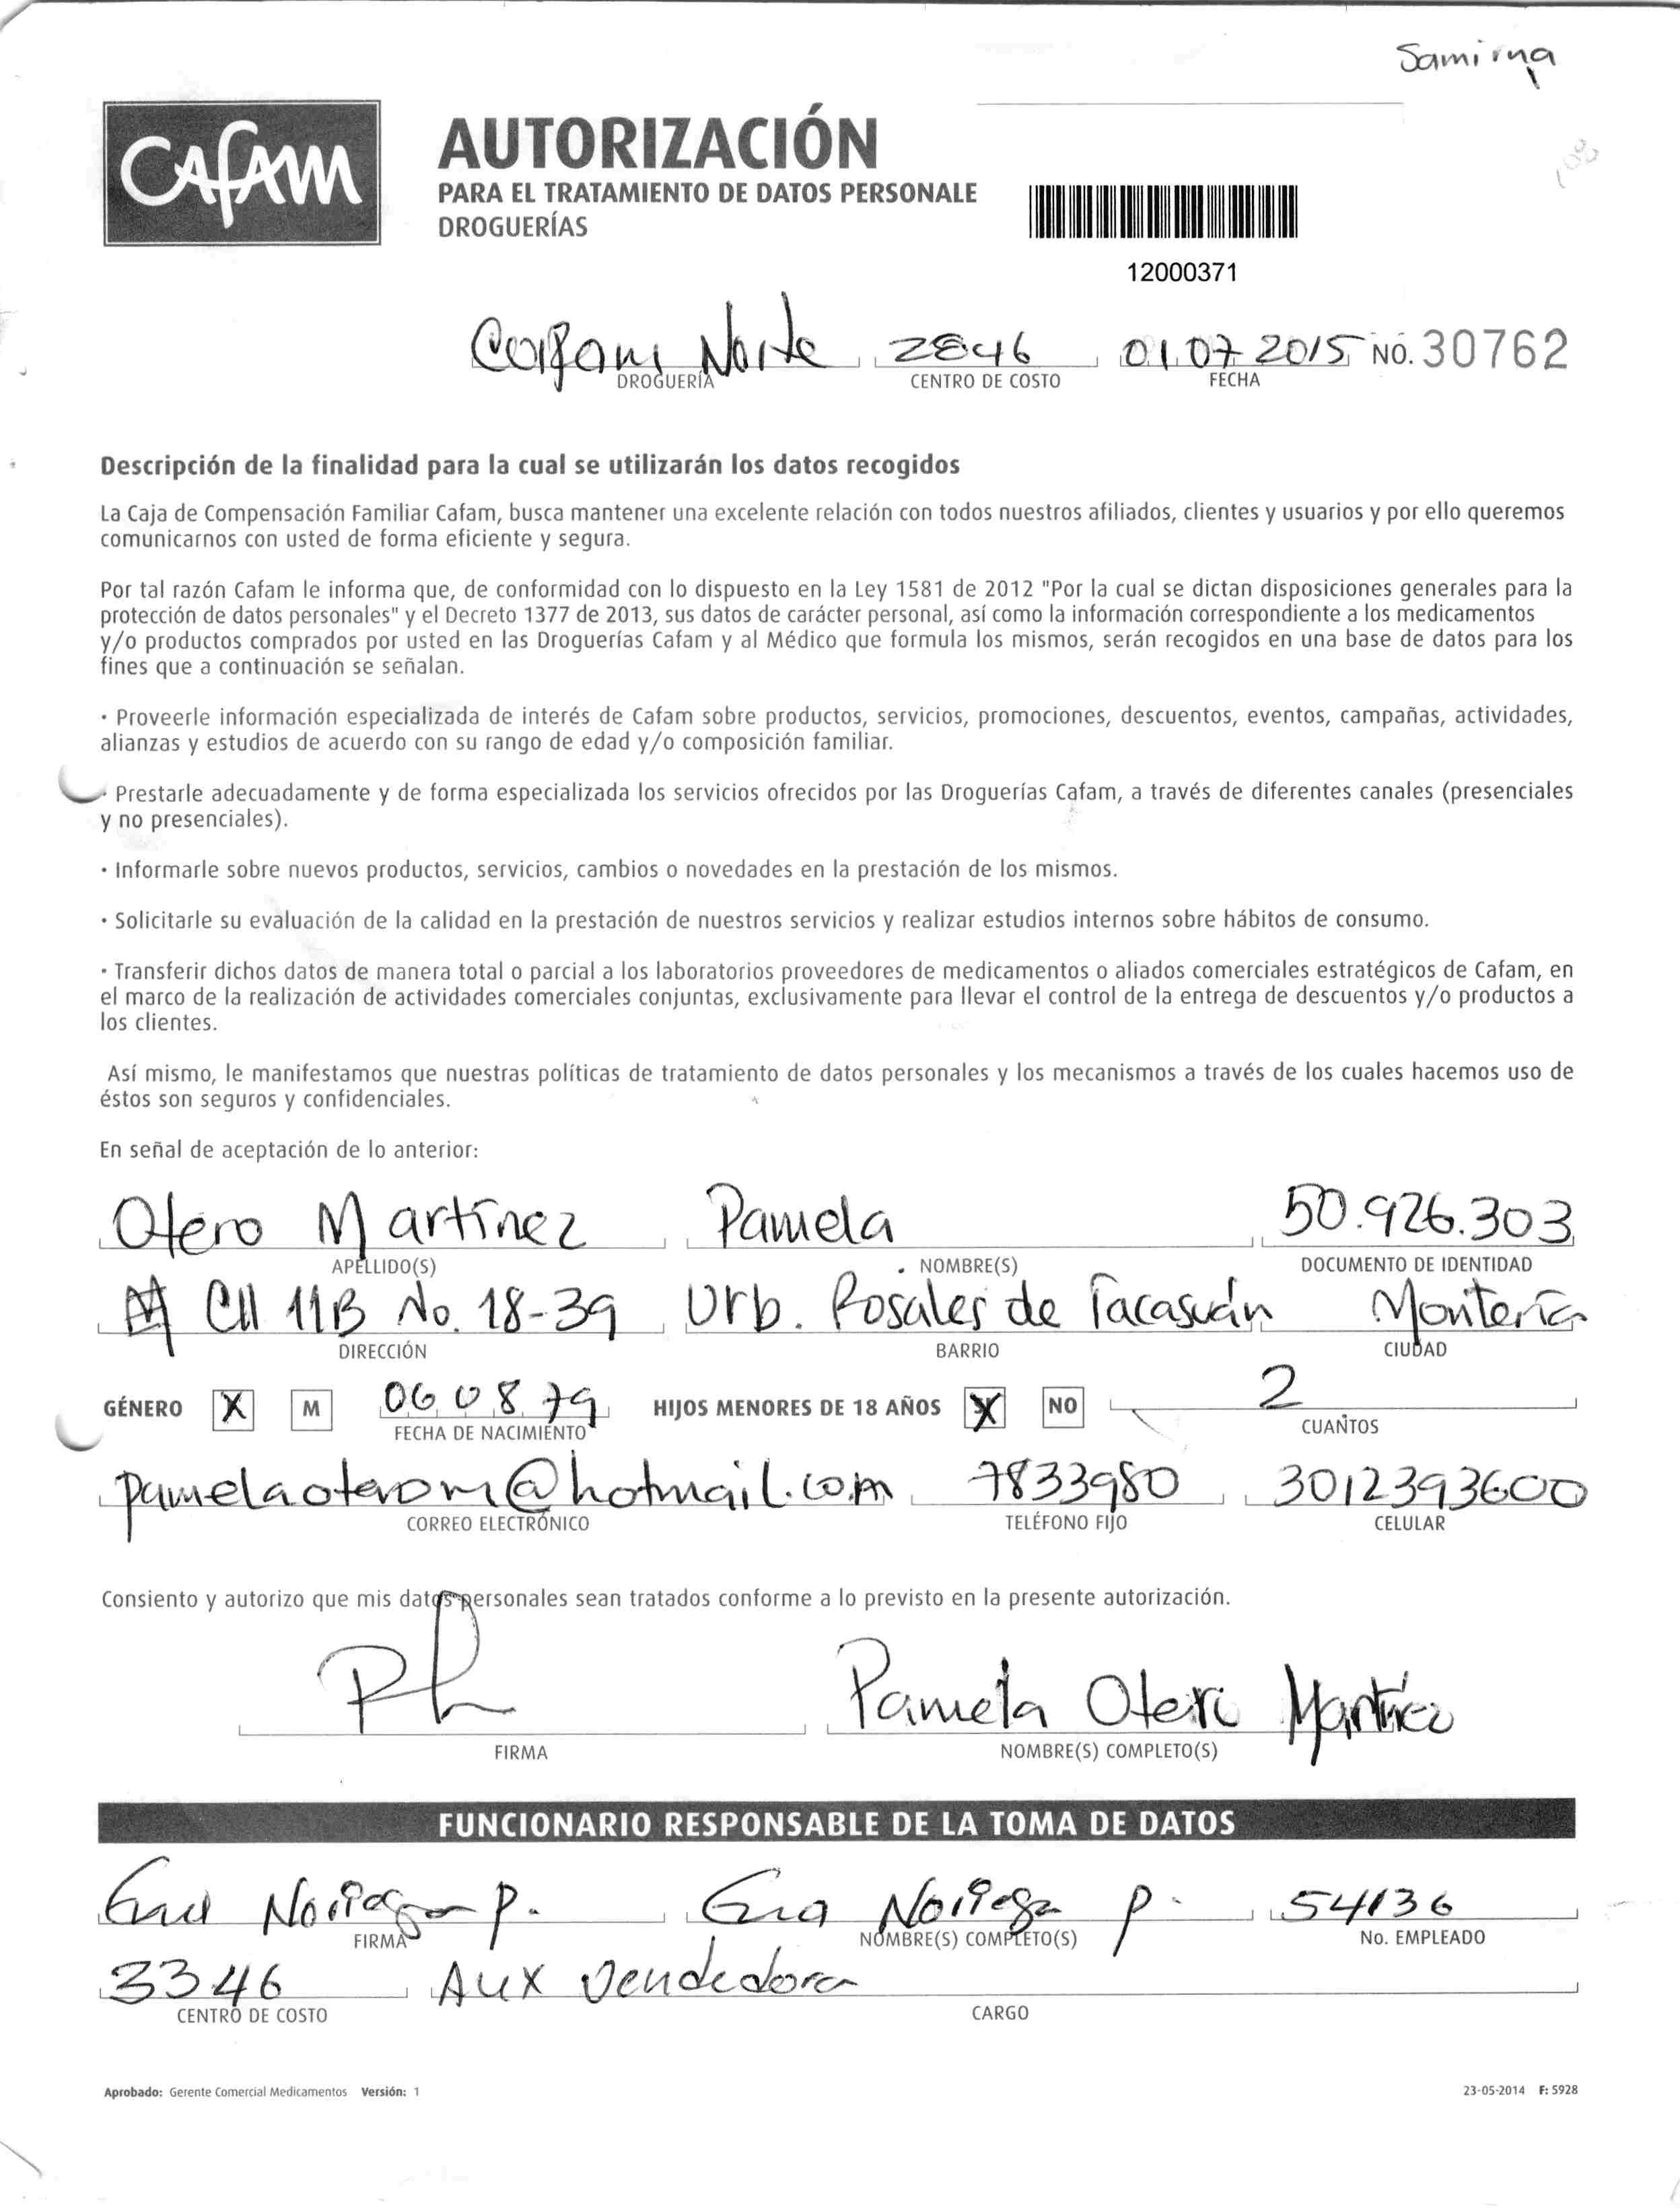 Samirna
Cafam
AUTORIZACIÓN
PARA EL TRATAMIENTO DE DATOS PERSONALE
DROGUERÍAS
12000371
Cafam Norte 2846 01 07 2015 NO. 30762
DROGUERÍA CENTRO DE COSTO FECHA
Descripción de la finalidad para la cual se utilizarán los datos recogidos
La Caja de Compensación Familiar Cafam, busca mantener una excelente relación con todos nuestros afiliados, clientes y usuarios y por ello queremos
comunicarnos con usted de forma eficiente y segura.
Por tal razón Cafam le informa que, de conformidad con lo dispuesto en la Ley 1581 de 2012 "Por la cual se dictan disposiciones generales para la
protección de datos personales" y el Decreto 1377 de 2013, sus datos de carácter personal, así como la información correspondiente a los medicamentos
y/o productos comprados por usted en las Droguerías Cafam y al Médico que formula los mismos, serán recogidos en una base de datos para los
fines que a continuación se señalan.
· Proveerle información especializada de interés de Cafam sobre productos, servicios, promociones, descuentos, eventos, campañas, actividades,
alianzas y estudios de acuerdo con su rango de edad y/o composición familiar.
· Prestarle adecuadamente y de forma especializada los servicios ofrecidos por las Droguerías Cafam, a través de diferentes canales (presenciales
y no presenciales).
· Informarle sobre nuevos productos, servicios, cambios o novedades en la prestación de los mismos.
· Solicitarle su evaluación de la calidad en la prestación de nuestros servicios y realizar estudios internos sobre hábitos de consumo.
· Transferir dichos datos de manera total o parcial a los laboratorios proveedores de medicamentos o aliados comerciales estratégicos de Cafam, en
el marco de la realización de actividades comerciales conjuntas, exclusivamente para llevar el control de la entrega de descuentos y/o productos a
los clientes.
Así mismo, le manifestamos que nuestras políticas de tratamiento de datos personales y los mecanismos a través de los cuales hacemos uso de
éstos son seguros y confidenciales.
En señal de aceptación de lo anterior:
Otero Martínez Pamela 50.926.303
APELLIDO(S) NOMBRE(S) DOCUMENTO DE IDENTIDAD
Cll 11B No. 18-39 Urb. Rosales de Tacasuán Montería
DIRECCIÓN BARRIO CIUDAD
GÉNERO X M 06 08 79 HIJOS MENORES DE 18 AÑOS X NO 2
FECHA DE NACIMIENTO CUANTOS
pamelaoterom@hotmail.com 7833980 3012393600
CORREO ELECTRÓNICO TELÉFONO FIJO CELULAR
Consiento y autorizo que mis datos personales sean tratados conforme a lo previsto en la presente autorización.
Pamela Otero Martínez
FIRMA NOMBRE(S) COMPLETO(S)
FUNCIONARIO RESPONSABLE DE LA TOMA DE DATOS
Noriega P. Noriega P. 54136
FIRMA NOMBRE(S) COMPLETO(S) No. EMPLEADO
3346 Aux Vendedora
CENTRO DE COSTO CARGO
Aprobado: Gerente Comercial Medicamentos Versión: 1 23-05-2014 F: 5928